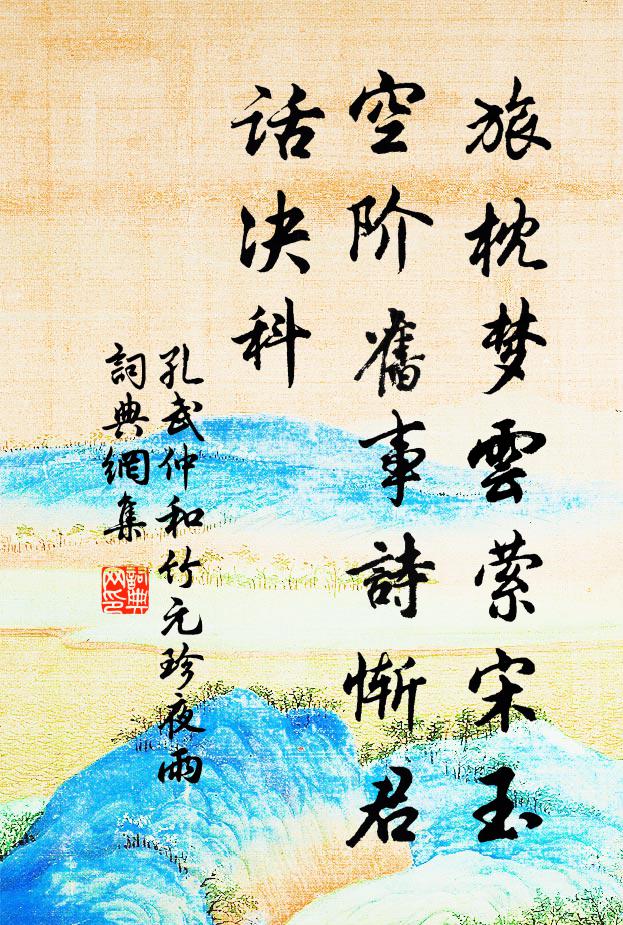 旅枕梦雲萦宋玉
空阶舊事詩惭君
话决科
孔武仲和竹元珍夜雨
詞典網集
詞典网印